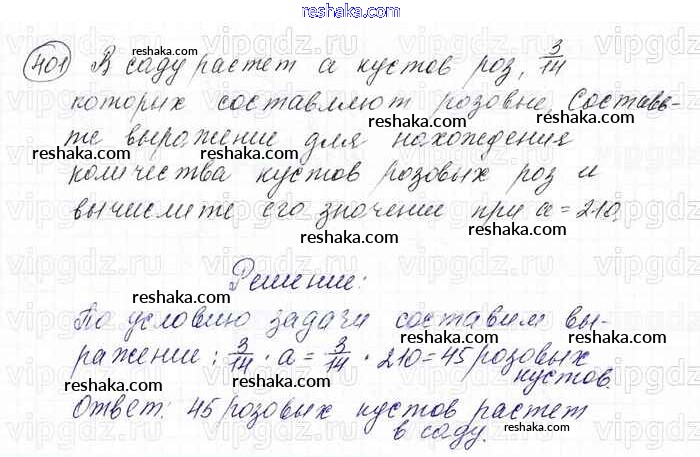 reshaka.com
401 В саду растет a кустов роз, 3/14
которых составляют розовые. Составь-
те выражение для нахождения
количества кустов розовых роз и
вычислите его значение при a = 210.
Решение:
По условию задачи составим вы-
ражение: 3/14 · a = 3/14 · 210 = 45 розовых
кустов.
Ответ: 45 розовых кустов растет
в саду.